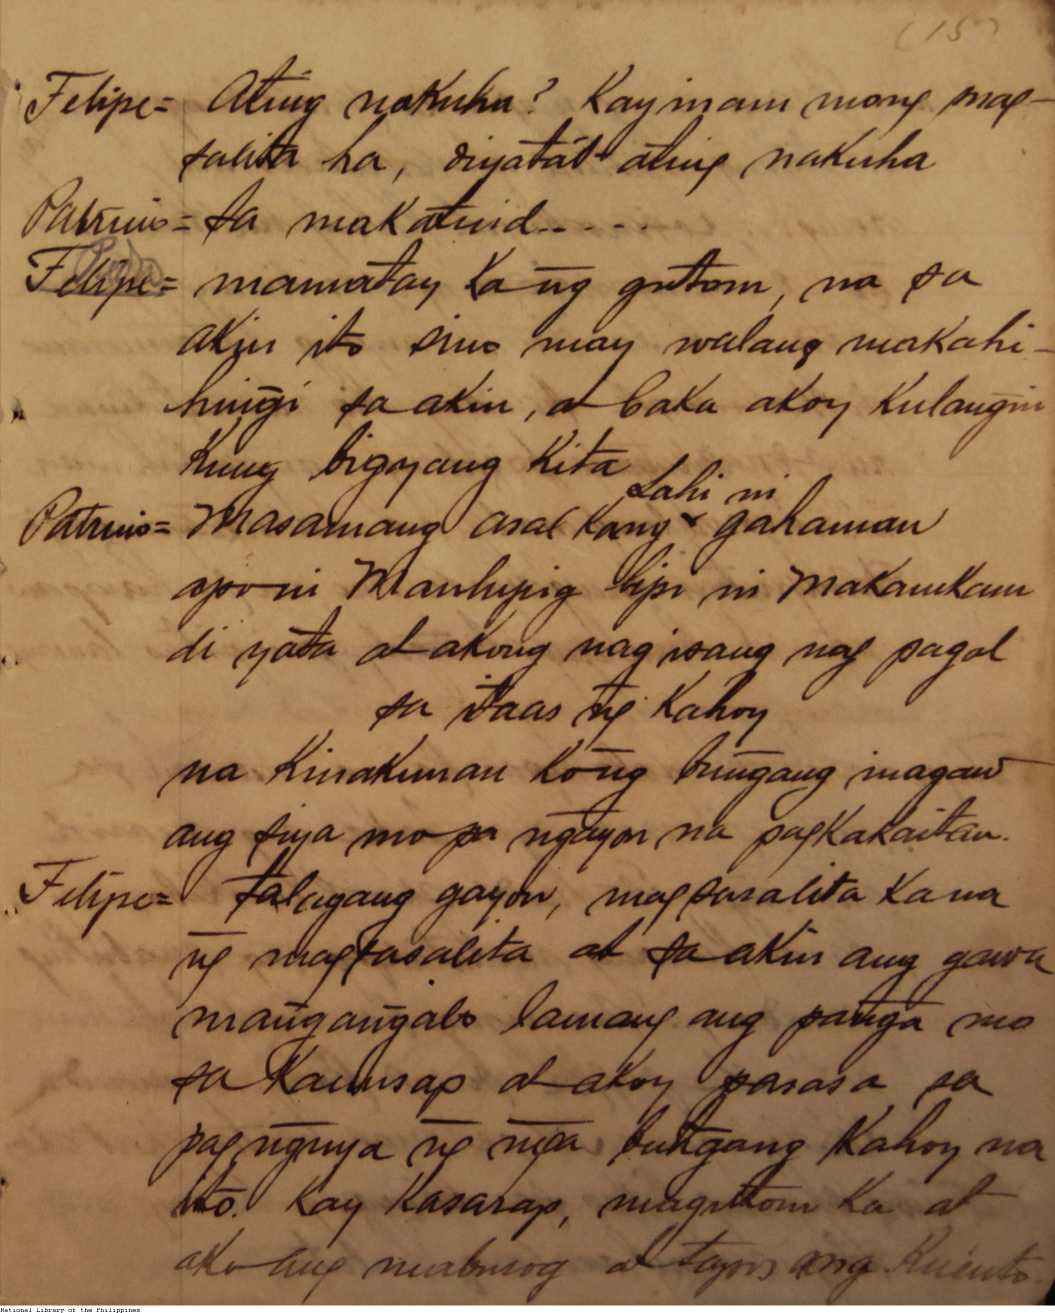 (15)
Felipe= Ating nakuha? Kayinam mong mag-
salita ha, diyata't ating nakuha
Patricio= Sa makatuid.....
Felipe= mamatay ka n̄g gutom, na sa
akin ito sino may walang makahi-
hin̄gi sa akin, at baka akoy kulan̄gin
kung bigayang kita
Patricio= Masamang asal kang Lahi ni gahaman
apo ni Manlupig lipi ni Makamkam
di yata at akong nag isang nag pagal
sa itaas n̄g kahoy
na kinakunan kōng bun̄gang inagaw
ang siya mo pa n̄gayon na pagkakaitan.
Felipe= talagang gayon, magsasalita ka na
n̄g magsasalita at sa akin ang gawa
man̄gan̄galo lamang ang pan̄ga mo
sa kauusap at akoy sasasa sa
pag n̄guya n̄g mḡa bun̄gang kahoy na
ito. Kay kasarap, magutom ka at
ako ang mabusog at tayos ang kuento.
National Library of the Philippines